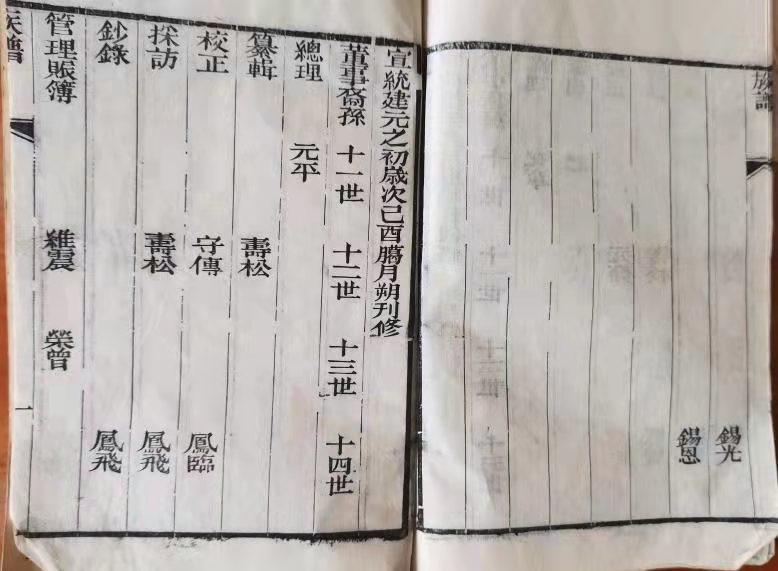 族譜
錫光
錫恩
宣統建元之初歲次己酉臈月朔刊修
董事裔孫 十一世 十二世 十三世 十四世
總理 元平
纂輯 壽松
校正 守傳 鳳臨
採訪 壽松 鳳飛
鈔錄 鳳飛
管理賬簿 維震 榮曾
族譜 一